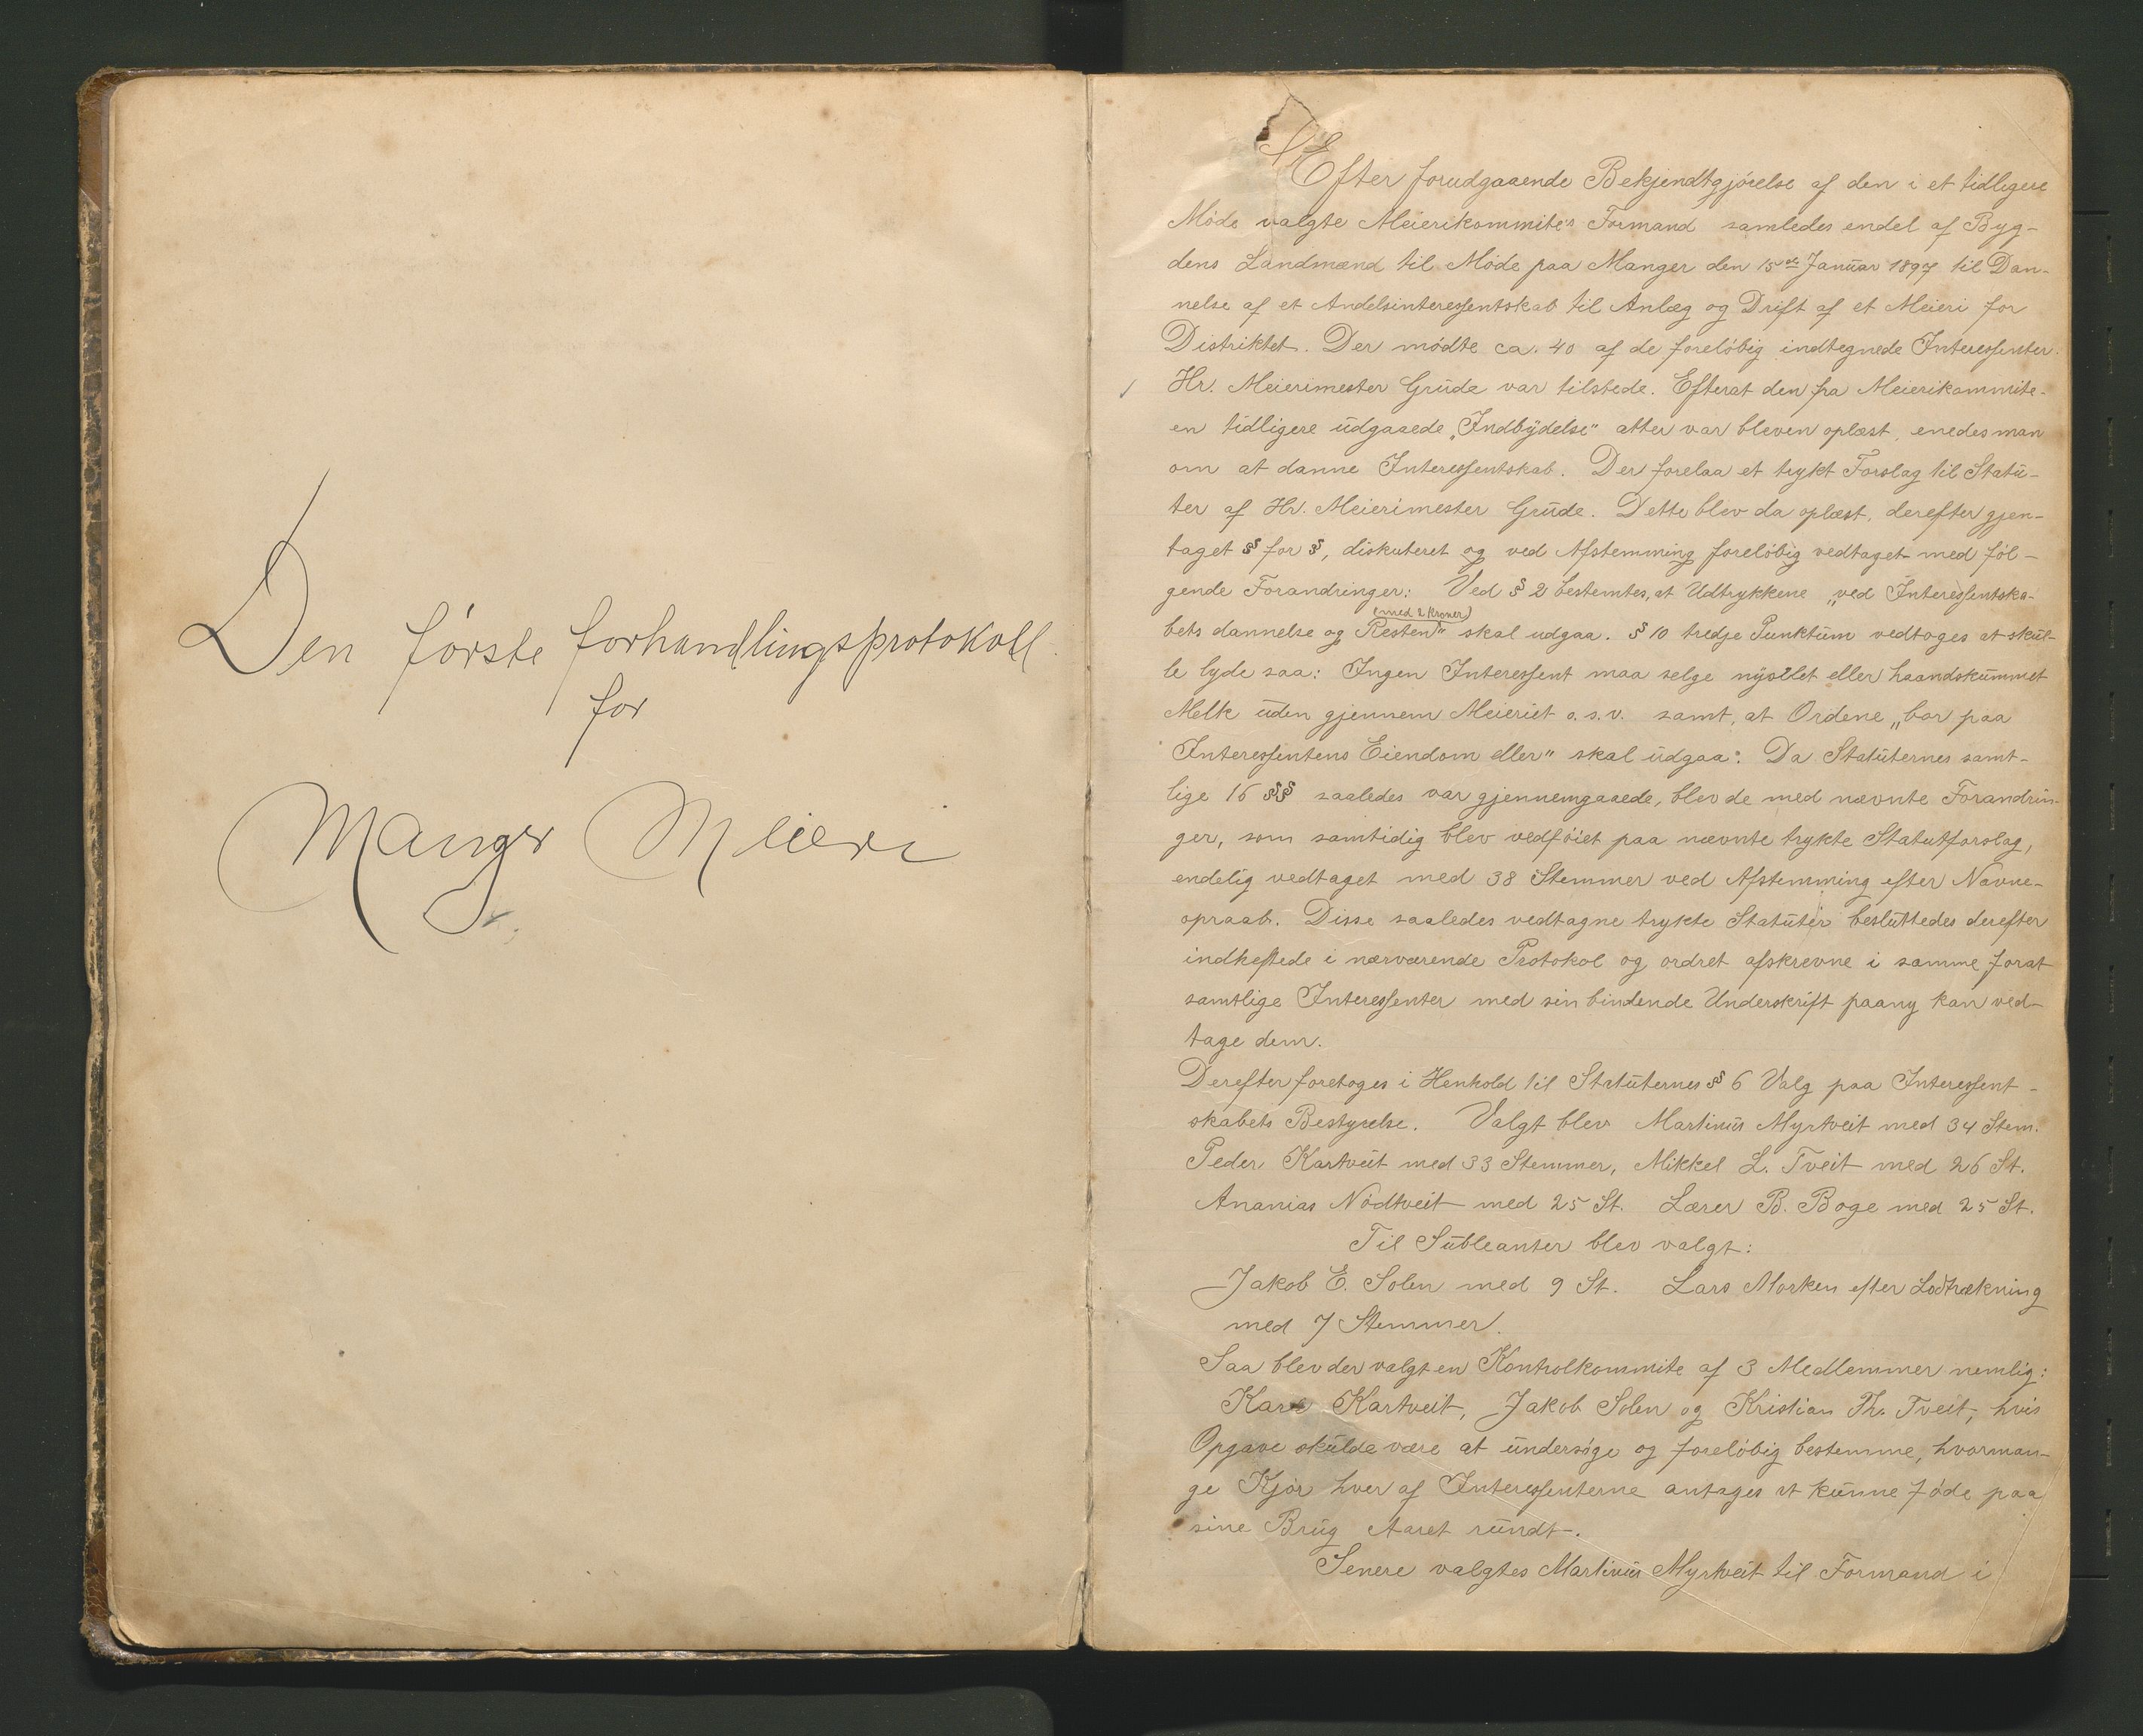 Den første forhandlingsprotokoll
for
Manger Meieri
Efter forudgaaende Bekjendtgjörelse af den i et tidligere
Möde valgte Meierikommite's Formand samledes endel af Byg-
dens Landmænd til Möde paa Manger den 15de Januar 1897 til Dan-
nelse af et Andelsinteressentskab til Anlæg og Drift af et Meieri for
Distriktet. Der mödte ca. 40 af de forelöbig indtegnede Interessenter.
Hr. Meierimester Grude var tilstede. Efterat den fra Meierikommite-
en tidligere udgaaede „Indbydelse" atter var bleven oplæst, enedes man
om at danne Interessentskab. Der forelaa et trykt Forslag til Statu-
ter af Hr. Meierimester Grude. Dette blev da oplæst, derefter gjen-
taget § for §, diskuteret og ved Afstemming forelöbig vedtaget med föl-
gende Forandringer: Ved § 2 bestemtes, at Udtrykkene „ved Interessentska-
(med 2 Kroner)
bets dannelse og Resten" skal udgaa. § 10 tredje Punktum vedtoges at skul-
le lyde saa: Ingen Interessent maa selge nysilet eller haandskummet
Melk uden gjennem Meieriet o.s.v. samt, at Ordene „bor paa
Interessentens Eiendom eller" skal udgaa. Da Statuternes samt-
lige 16 §§ saaledes var gjennemgaaede, blev de med nævnte Forandrin-
ger, som samtidig blev vedföiet paa nævnte trykte Statutforslag,
endelig vedtaget med 38 Stemmer ved Afstemming efter Navne-
opraab. Disse saaledes vedtagne trykte Statuter besluttedes derefter
indheftede i nærværende Protokol og ordret afskrevne i samme forat
samtlige Interessenter med sin bindende Underskrift paany kan ved-
tage dem.
Derefter foretoges i Henhold til Statuternes § 6 Valg paa Interessent-
skabets Bestyrelse. Valgt blev Martinus Myrtveit med 34 Stem.
Peder Kartveit med 33 Stemmer, Mikkel L. Tveit med 26 St.
Ananias Nödtveit med 25 St. Lærer B. Boge med 25 St.
Til Subleanter blev valgt:
Jakob E. Solen med 9 St. Lars Morken efter Lodtrækning
med 7 Stemmer.
Saa blev der valgt en Kontrolkommite af 3 Medlemmer nemlig:
Kartveit, Jakob Solen og Kristian Th. Tveit, hvis
Opgave skulde være at undersöge og forelöbig bestemme, hvorman-
ge Kjör hver af Interessenterne antages at kunne föde paa
sine Brug Aaret rundt.
Senere valgtes Martinus Myrtveit til Formand i